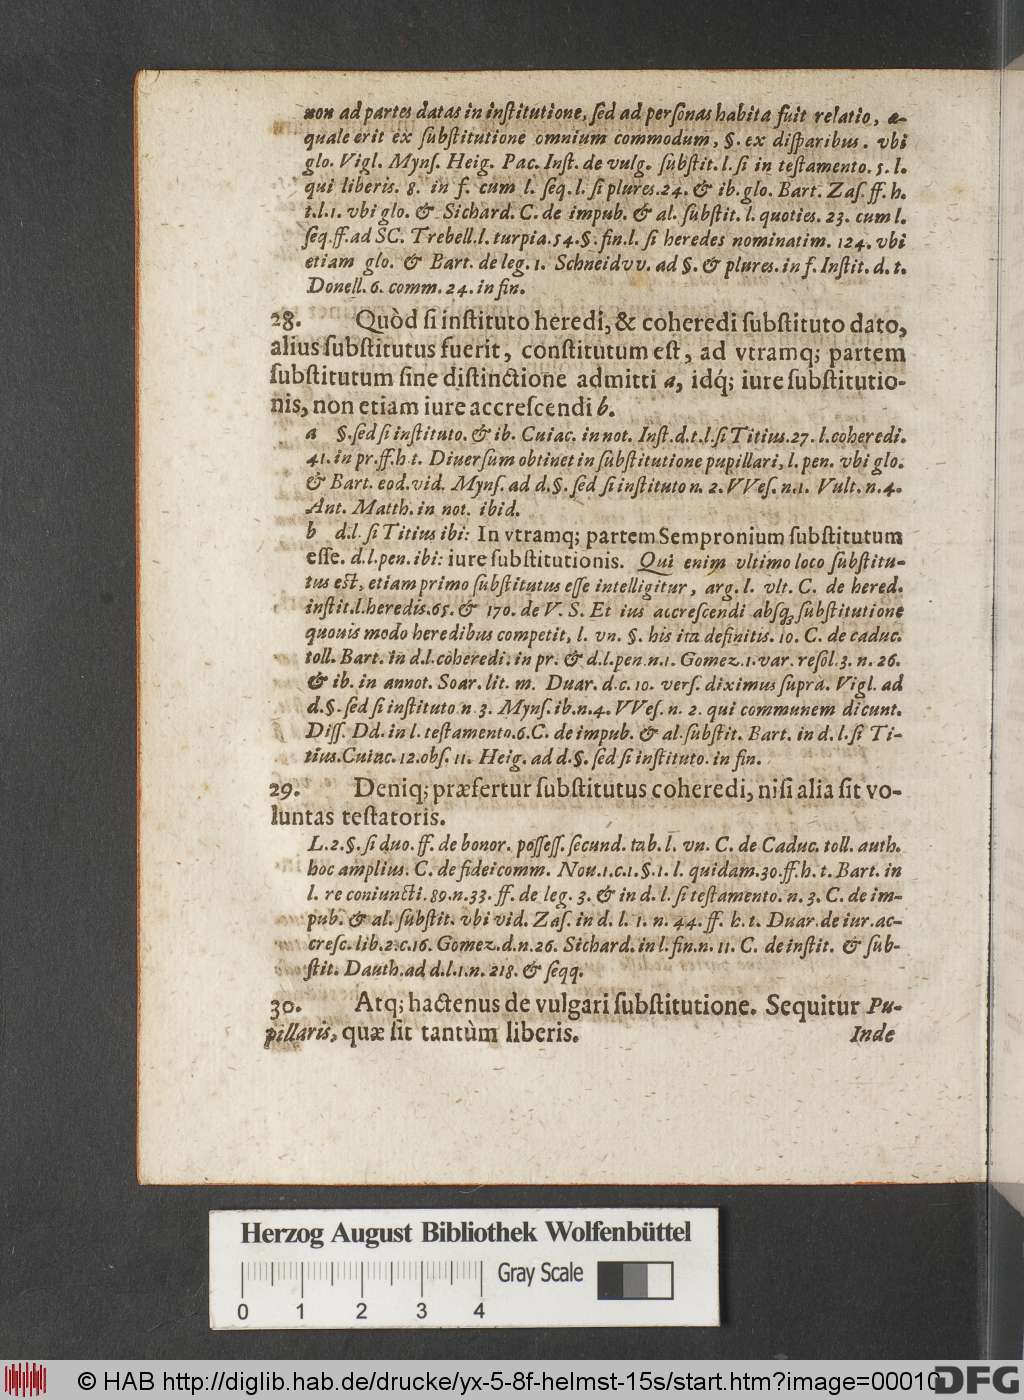 non ad partes datas in inſtitutione, ſed ad perſonas habita fuit relatio, æ-
quale erit ex ſubſtitutione omnium commodum, §. ex diſparibus. vbi
glo. Vigl. Mynſ. Heig. Pac. Inſt. de vulg. ſubſtit. l. ſi in teſtamento. 5. l.
qui liberis. 8. in f. cum l. ſeq. l. ſi plures. 24. & ib. glo. Bart. Zaſ. ff. h.
t. l. 1. vbi glo. & Sichard. C. de impub. & al. ſubſtit. l. quoties. 23. cum l.
ſeq. ff. ad SC. Trebell. l. turpia. 54. §. fin. l. ſi heredes nominatim. 124. vbi
etiam glo. & Bart. de leg. 1. Schneidvv. ad §. & plures. in f. Inſtit. d. t.
Donell. 6. comm. 24. in fin.
28. Quòd ſi inſtituto heredi, & coheredi ſubſtituto dato,
alius ſubſtitutus fuerit, conſtitutum eſt, ad vtramq; partem
ſubſtitutum ſine diſtinctione admitti a, idq́; iure ſubſtitutio-
nis, non etiam iure accreſcendi b.
a §. ſed ſi inſtituto. & ib. Cuiac. in not. Inſt. d. t. l. ſi Titius. 27. l. coheredi.
41. in pr. ff. h t. Diuerſum obtinet in ſubſtitutione pupillari, l. pen. vbi glo.
& Bart. eod. vid. Mynſ. ad d. §. ſed ſi inſtituto n. 2. VVeſ. n. 1. Vult. n. 4.
Ant. Matth. in not. ibid.
b d. l. ſi Titius ibi: In vtramq; partem Sempronium ſubſtitutum
eſſe. d. l. pen. ibi: iure ſubſtitutionis. Qui enim vltimo loco ſubſtitu-
tus eſt, etiam primo ſubſtitutus eſſe intelligitur, arg. l. vlt. C. de hered.
inſtit. l. heredis. 65. & 170. de V. S. Et ius accreſcendi abſq; ſubſtitutione
quouis modo heredibus competit, l. vn. §. his ita definitis. 10. C. de caduc.
toll. Bart. in d. l. coheredi. in pr. & d. l. pen. n. 1. Gomez. 1. var. reſol. 3. n. 26.
& ib. in annot. Soar. lit. m. Duar. d. c. 10. verſ. diximus ſupra. Vigl. ad
d. §. ſed ſi inſtituto n 3. Mynſ. ib. n. 4. VVeſ. n. 2. qui communem dicunt.
Diſſ. Dd. in l. teſtamento. 6. C. de impub. & al. ſubſtit. Bart. in d. l. ſi Ti-
tius. Cuiac. 12. obſ. 11. Heig. ad d. §. ſed ſi inſtituto. in fin.
29. Deniq; præfertur ſubſtitutus coheredi, niſi alia ſit vo-
luntas teſtatoris.
L. 2. §. ſi duo. ff. de bonor. poſſeſſ. ſecund. tab. l. vn. C. de Caduc. toll. auth.
hoc amplius. C. de fideicomm. Nou. 1. c. 1. §. 1. l. quidam. 30. ff. h. t. Bart. in
l. re coniuncti. 89. n. 33. ff. de leg. 3. & in d. l. ſi teſtamento. n. 3. C. de im-
pub. & al. ſubſtit. vbi vid. Zaſ. in d. l. 1. n. 44. ff. h. t. Duar. de iur. ac-
creſc. lib. 2. c. 16. Gomez. d. n. 26. Sichard. in l. fin. n. 11. C. de inſtit. & ſub-
ſtit. Dauth. ad d. l. 1. n. 218. & ſeqq.
30. Atq; hactenus de vulgari ſubſtitutione. Sequitur Pu-
pillaris, quæ ſit tantùm liberis.
Inde
Herzog August Bibliothek Wolfenbüttel
Gray Scale
0 1 2 3 4
© HAB http://diglib.hab.de/drucke/yx-5-8f-helmst-15s/start.htm?image=00010
DFG